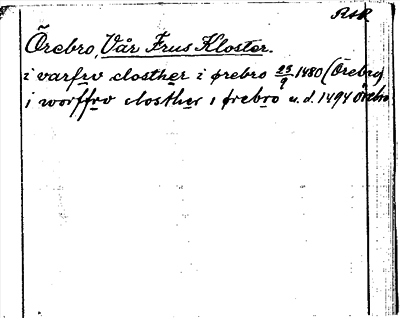 RAP
Örebro, Vår Frus Kloster.
i varfrv closther i ørebro 25/9 1480 (Örebro)
i worffrv closther i ørebro u.d. 1494 örebro